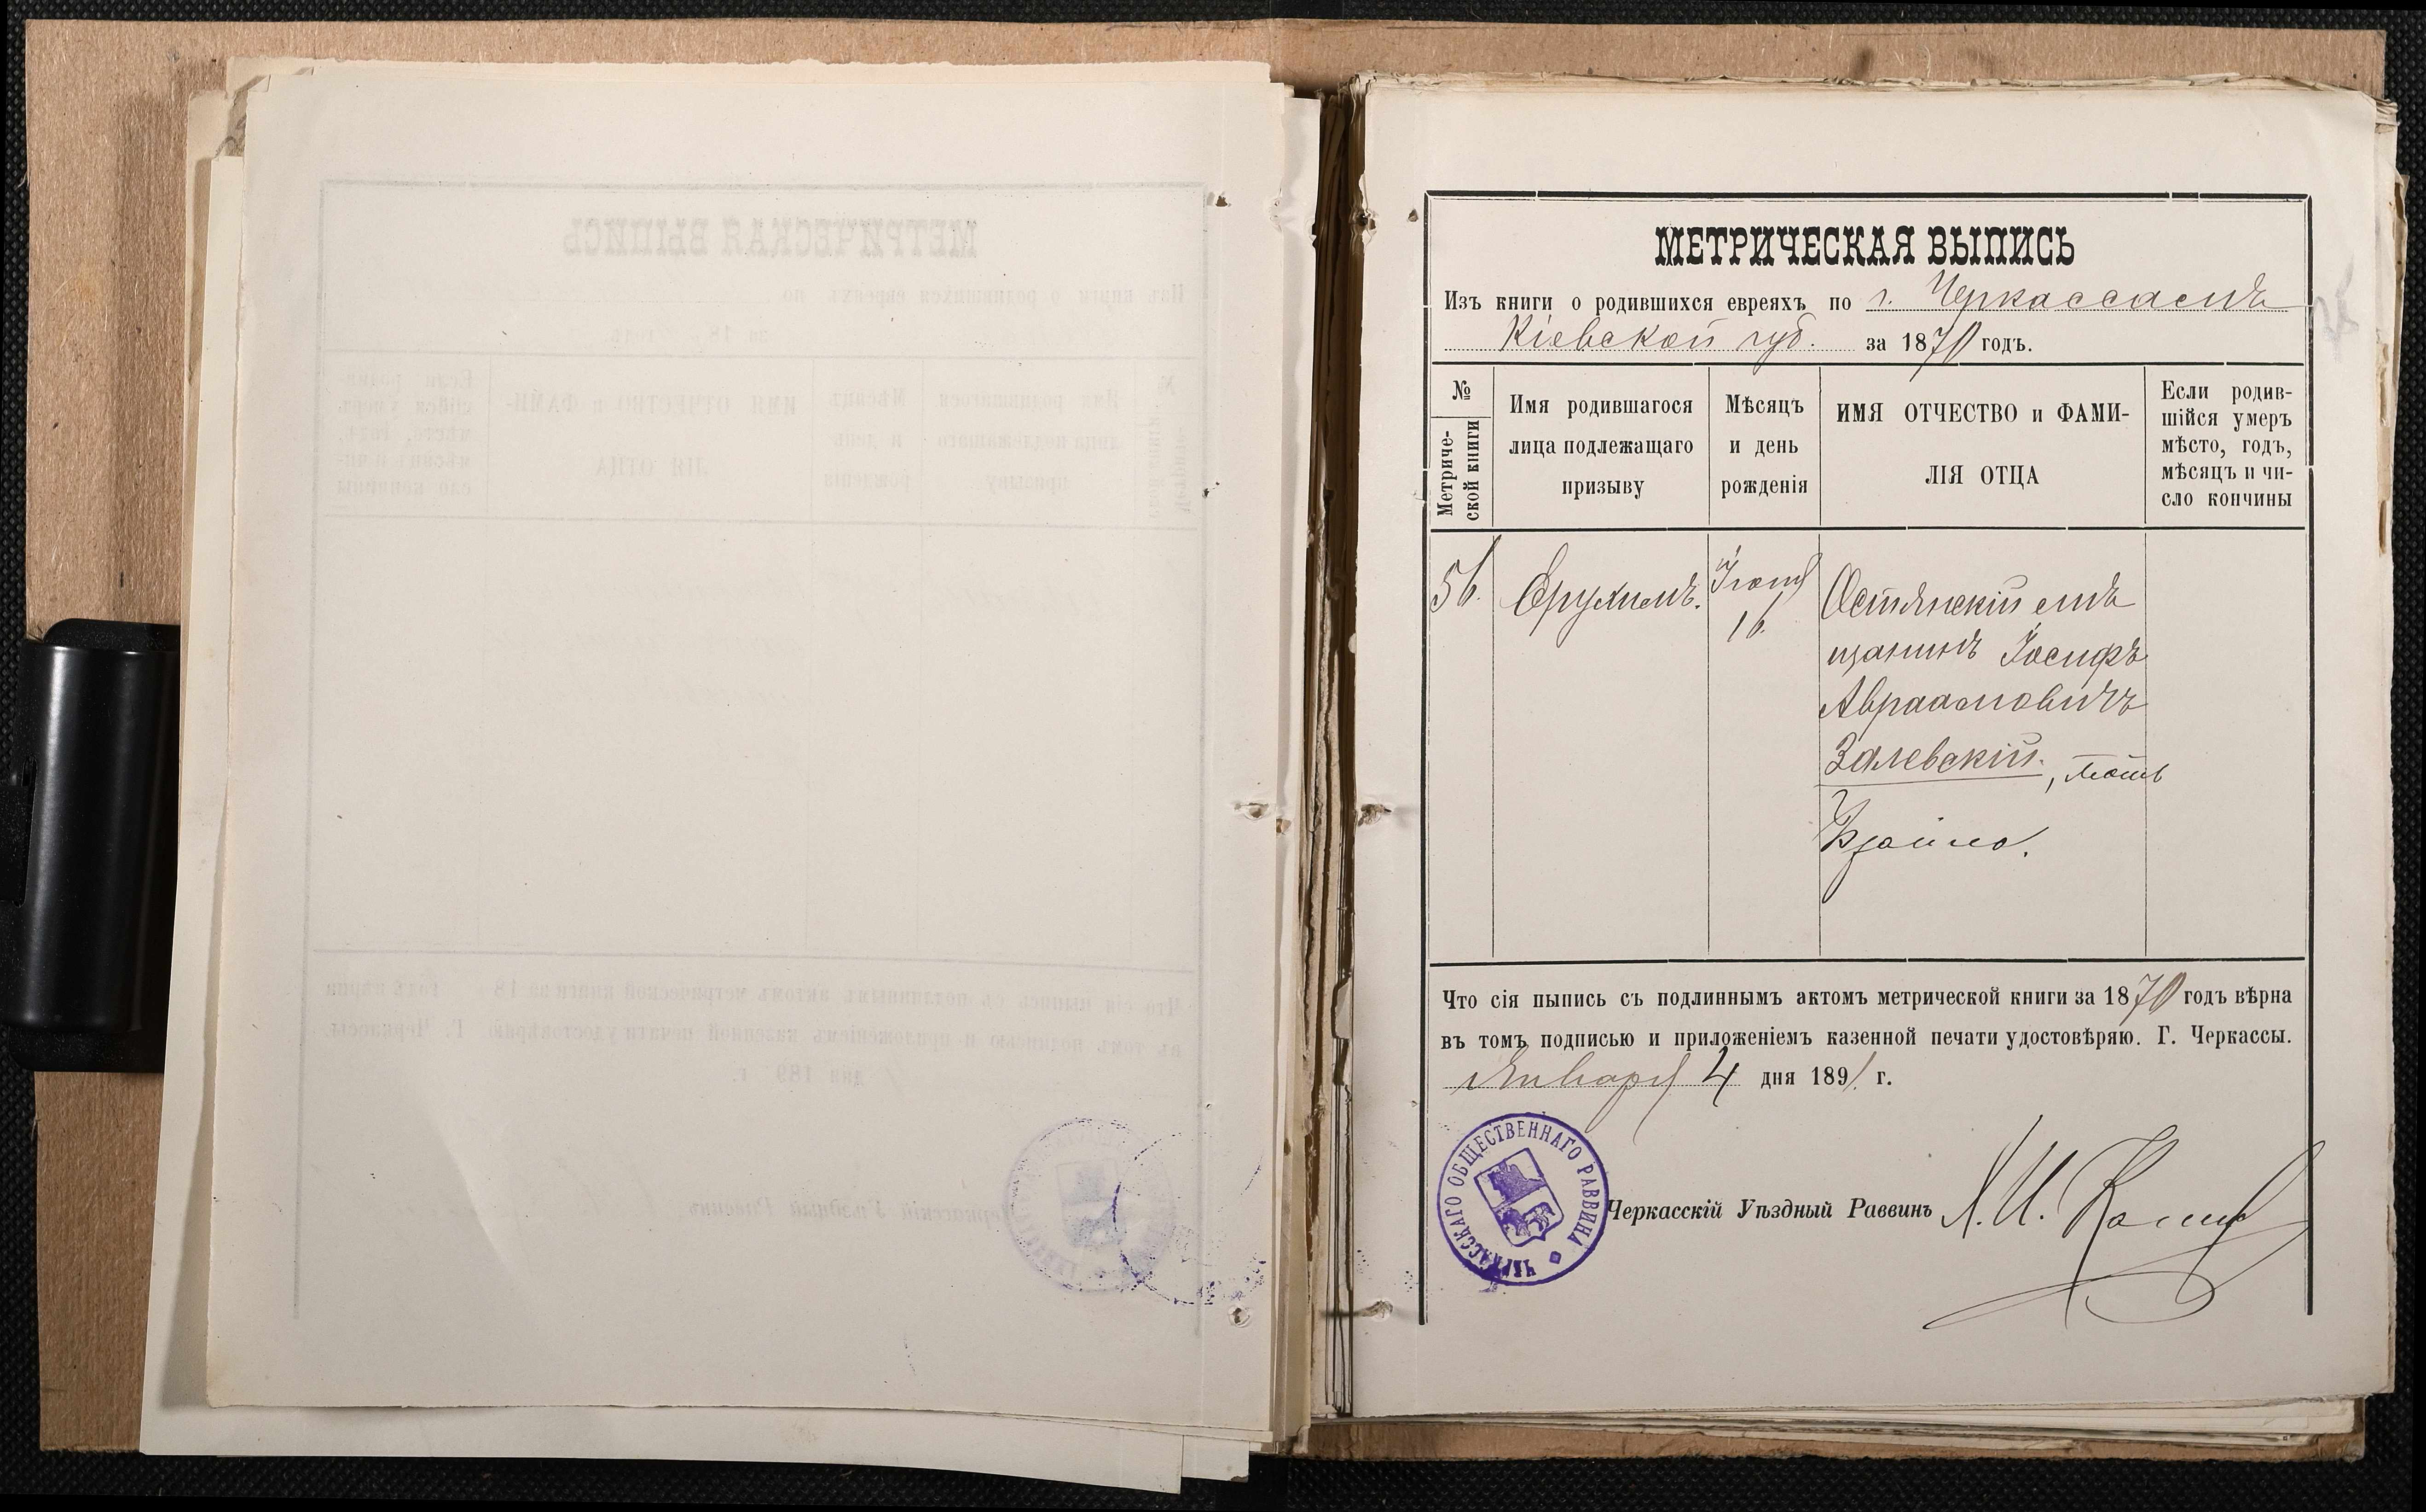 МЕТРИЧЕСКАЯ ВЫПИСЬ
Изъ книги о родившихся евреяхъ по г. Черкассамъ
Кіевской губ. за 1870 годъ.
№
Метриче-
ской книги
Имя родившагося
лица подлежащаго
призыву
Мѣсяцъ
и день
рожденія
ИМЯ ОТЧЕСТВО и ФАМИ-
ЛІЯ ОТЦА
Если родив-
шійся умеръ
мѣсто, годъ,
мѣсяцъ и чи-
сло кончины
56.
Ерухимъ.
16.
мѣ
щанинъ Іосифъ
Авраамовичъ
Залевскій., мать
Что сія пыпись съ подлиннымъ актомъ метрической книги за 1870 годъ вѣрна
въ томъ подписью и приложеніемъ казенной печати удостовѣряю. Г. Черкассы.
Января 4 дня 1891. г.
ЧЕРКАССКАГО ОБЩЕСТВЕННАГО РАВВИНА
Черкасскій Уѣздный Раввинъ